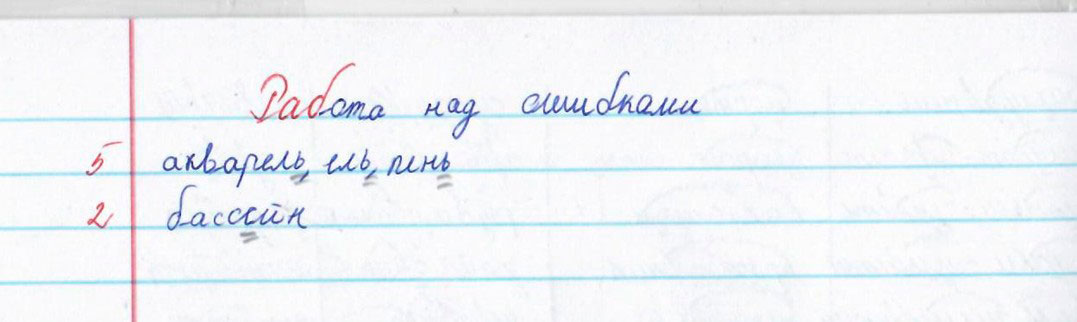 Работа над ошибками
5 акварель, ель, пень
2 бассейн